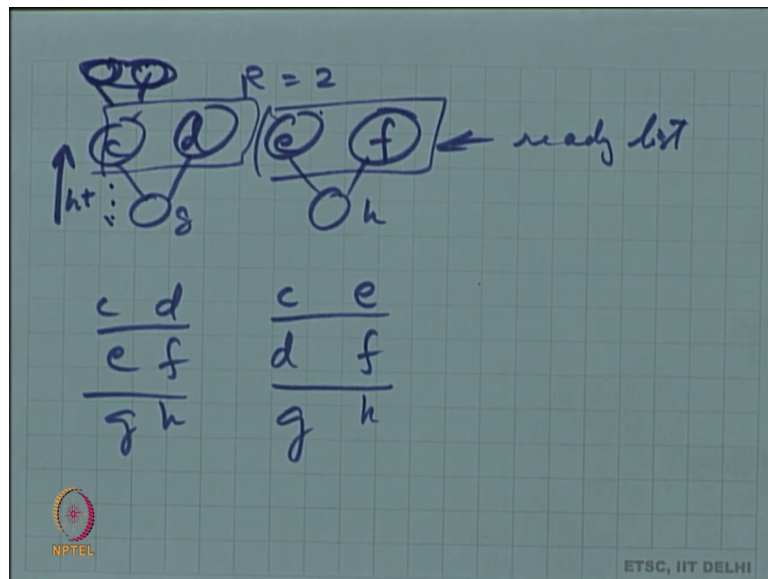 R = 2
c d e f ← ready list
ht g h
c d c e
e f d f
g h g h
NPTEL
ETSC, IIT DELHI